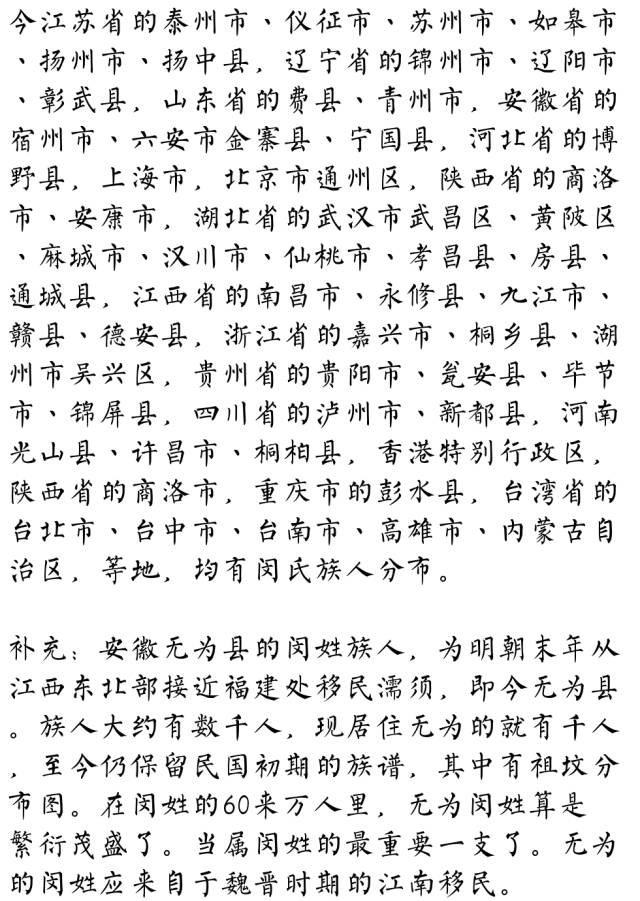 今江苏省的泰州市、仪征市、苏州市、如皋市
、扬州市、扬中县，辽宁省的锦州市、辽阳市
、彰武县，山东省的费县、青州市，安徽省的
宿州市、六安市金寨县、宁国县，河北省的博
野县，上海市，北京市通州区，陕西省的商洛
市、安康市，湖北省的武汉市武昌区、黄陂区
、麻城市、汉川市、仙桃市、孝昌县、房县、
通城县，江西省的南昌市、永修县、九江市、
赣县、德安县，浙江省的嘉兴市、桐乡县、湖
州市吴兴区，贵州省的贵阳市、瓮安县、毕节
市、锦屏县，四川省的泸州市、新都县，河南
光山县、许昌市、桐柏县，香港特别行政区，
陕西省的商洛市，重庆市的彭水县，台湾省的
台北市、台中市、台南市、高雄市、内蒙古自
治区，等地，均有闵氏族人分布。
补充：安徽无为县的闵姓族人，为明朝末年从
江西东北部接近福建处移民濡须，即今无为县
。族人大约有数千人，现居住无为的就有千人
，至今仍保留民国初期的族谱，其中有祖坟分
布图。在闵姓的60来万人里，无为闵姓算是
繁衍茂盛了。当属闵姓的最重要一支了。无为
的闵姓应来自于魏晋时期的江南移民。